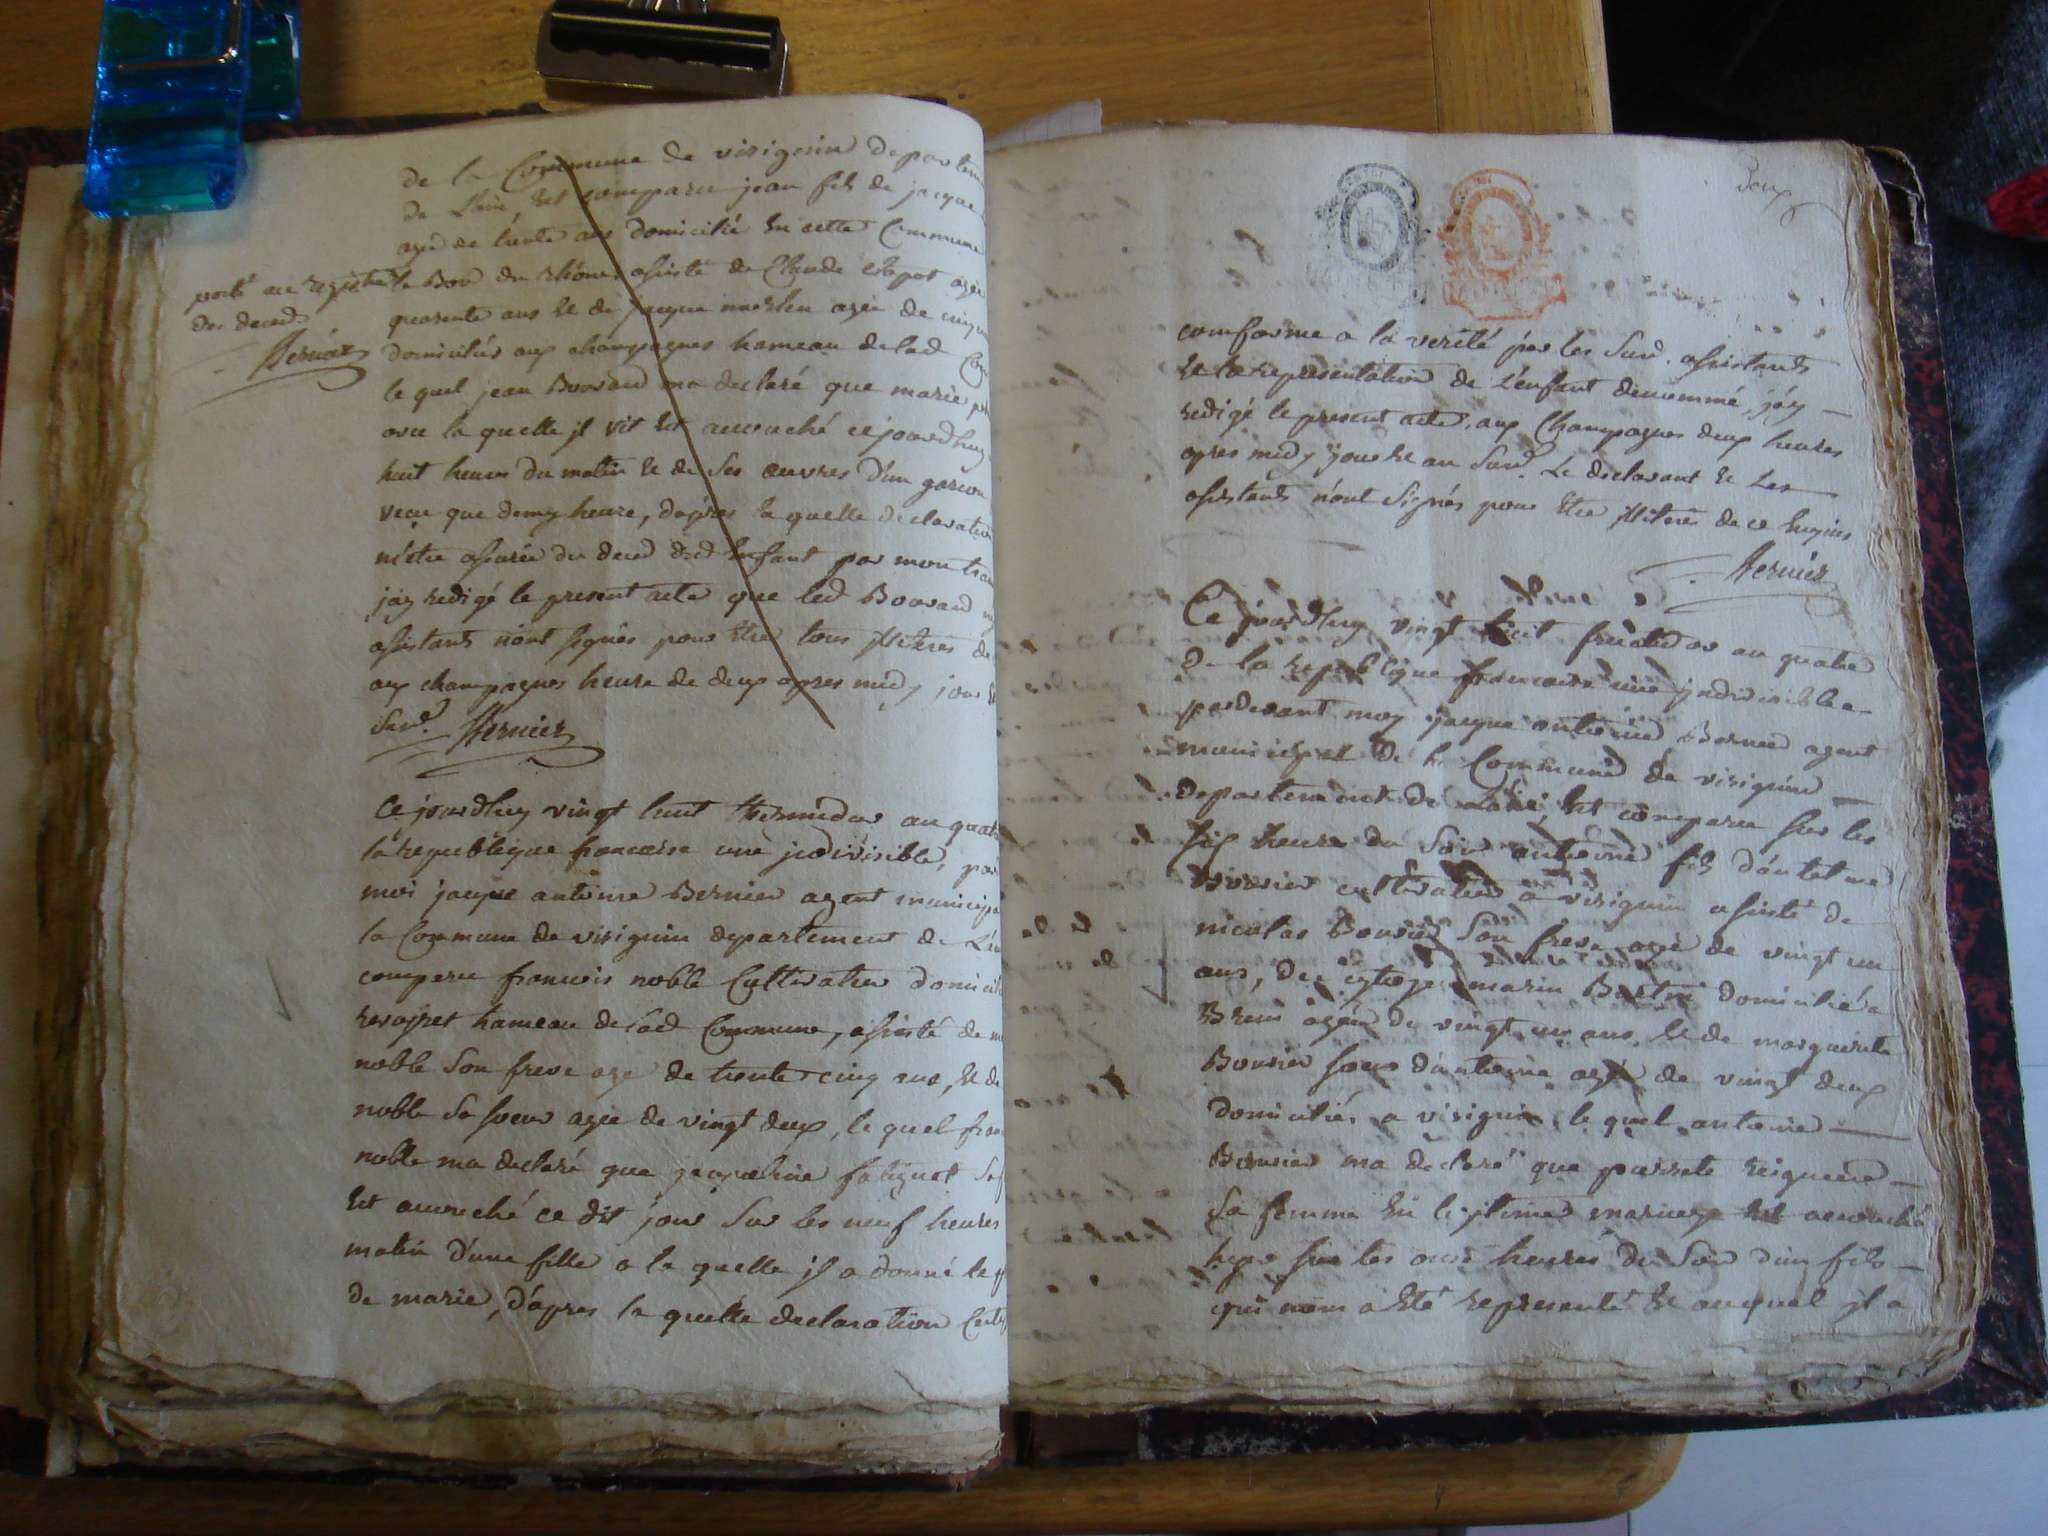 de la Commune de virignin departem
de L'ain Est comparu jean fils de jacque
agé de trente ans domicilié En cette Commune
le Bord du Rhone, assisté de Claude agé
quarente ans Et de jacque merlin agée de cinq
domiciliés aux champagnes hameau de lad Com
le quel jean Bovard ma declaré que marie
avec la quelle jl vit Est accouché ce jourdhuy
huit heures du matin Et de Ses œuvres D'un garcon
vecu que demy heure, d'après la quelle declaration
m'etre assurée du deced dud Enfant par mon tran
j'ay redigé le present acte que led Bovard
assistants n'ont signés pour Etre tous jlliterés de
aux champagnes heure de deux apres midy jour Et
Sud. Bernier
porté au registre
des deced
Bernier
Ce jourdhuy vingt huit thermidor an quatre
la republique francaise une jndivisible, par
moi jacque antoine Bernier agent municipa
la Commune de virignin departement de L'ain
comparu francois noble Cultivateur domicili
hameau de lad Commune, assisté de
noble Son frere agé de trente cinq ans, Et de
noble Sa soeur agée de vingt deux, le quel fran
noble ma declaré que jacqueline
Est accouché ce dit jour Sur les neuf heures
matin d'une fille a la quelle jl a donné le
de marie, d'apres la quelle declaration Certif
deux
comforme a la verité par les Sud. assistants
Et la representation de L'enfant denommé, j'ay
redigé le present acte, aux Champagnes deux heures
apres midy jour Et an Sud. Le declarant Et Les
assistants n'ont Signés pour Etre jlliterés de ce Enquis
Bernier
Ce jourdhuy vingt huit fructidor an quatre
de la republique francaise une jndivisible
pardevant moy jacque antoine Bernier agent
municipal de la Commune de virignin
departement de L'ain, Est comparu sur les
six heure du Soir antoine fils d'antelme
cultivateur a virignin assisté de
nicolas Bouvier Son frere agé de vingt un
ans, du citoyen marin domicilié a
Brens agée de vingt un ans Et de marguerite
Bouvier soeur d'antoine agée de vingt deux
domiciliés a virignin le quel antoine
Bouvier ma declaré que pierrette
Sa femme En legitime mariage Est accouché
hyer sur les onze heures du Soir d'un fils
qui nous a Eté representé Et auquel jl a